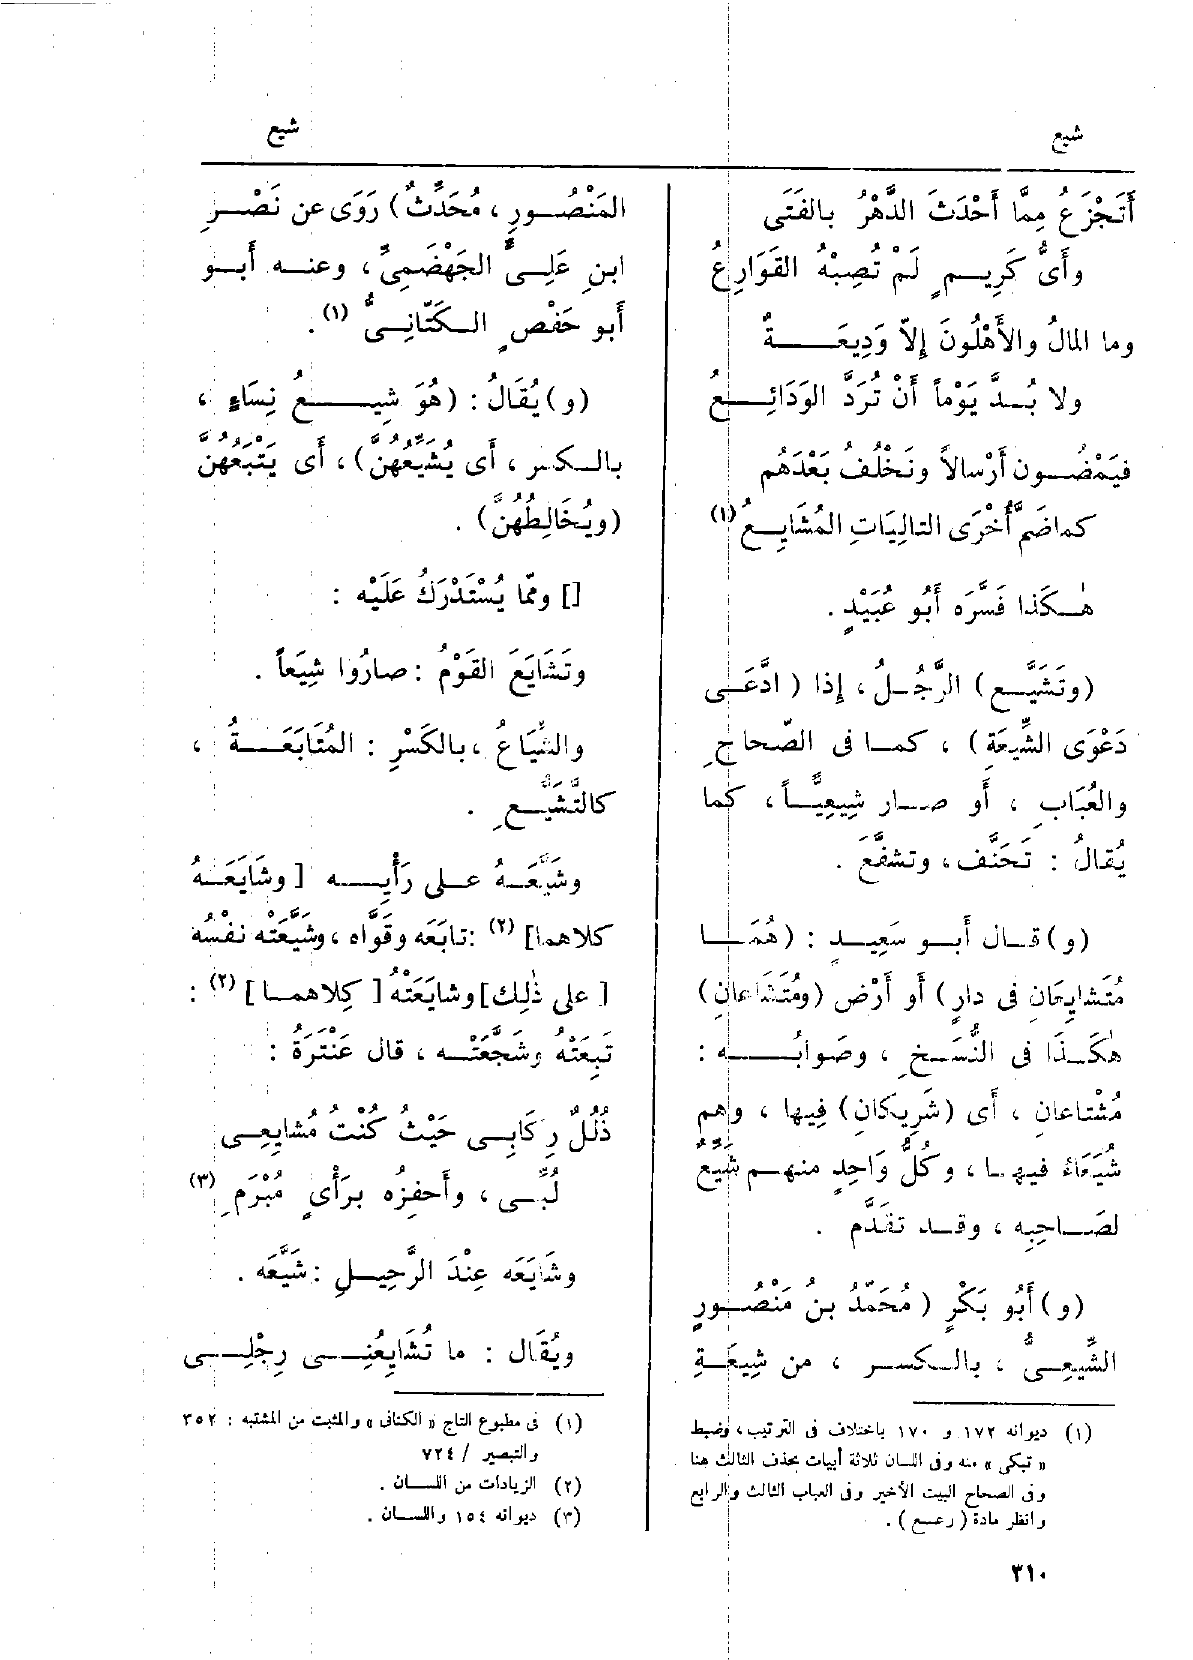 شيع
شيع
أَتَجْزَعُ مِمَّا أَحْدَثَ الدَّهْرُ بالفَتَى
وأَىُّ كَرِيمٍ لَمْ تُصِبْهُ القَوَارِعُ
وما المالُ والأَهْلُونَ إِلاّ وَدِيعَةٌ
ولا بُدَّ يَوْماً أَنْ تُرَدَّ الوَدَائِعُ
فيَمْضُون أَرْسالاً ونَخْلُفُ بَعْدَهُم
كماضَمَّ أُخْرَى التالِيَاتِ المُشَايِعُ (١)
هٰكَذا فَسَّرَه أَبُو عُبَيْدٍ .
(وتَشَيَّع) الرَّجُلُ، إِذا (ادَّعَى
دَعْوَى الشِّيعَةِ) ، كما فى الصّحاحِ
والعُبَابِ ، أَو صار شِيعِيًّا، كما
يُقالُ : تَحَنَّف، وتشفَّعَ .
(و) قال أَبو سَعِيدٍ : (هُمَا
مُتَشايِعَانِ فى دارٍ) أَو أَرْض (ومُتَشَاعانِ)
هٰكَذَا فى النُّسَخِ ، وصَوابُه :
مُشْتاعانِ ، أَى (شَرِيكانِ) فِيها ، وهم
شُيَعَاءُ فيها ، وكُلُّ وَاحِدٍ منهم شَيِّعٌ
لصَاحِبِه ، وقد تقَدَّم .
(و) أَبُو بَكْرٍ (مُحَمَّدُ بنُ مَنْصُورٍ
الشِّيعِىُّ ، بالكسر ، من شِيعَةِ
(١) ديوانه ١٧٢ و ١٧٠ باختلاف فى الترتيب، وضبط
« تبكى » منه وفى اللسان ثلاثة أبيات بحذف الثالث هنا
وفى الصحاح البيت الأخير وفى العباب الثالث والرابع
وانظر مادة (رعع) .
المَنْصُورِ ، مُحَدِّثٌ) رَوَى عن نَصْرِ
ابنِ عَلِىٍّ الجَهْضَمِىِّ، وعنه أَبو
أَبو حَفْصٍ الكَتّانِىُّ (١).
(و) يُقَالُ : (هُوَ شِيعُ نِسَاءٍ ،
بالكسر ، أَى يُشَيِّعُهنَّ)، أَى يَتْبَعُهنّ
(ويُخَالِطُهُنَّ) .
[] وممّا يُسْتَدْرَكُ عَلَيْه :
وتَشَايَعَ القَوْمُ : صارُوا شِيَعاً .
والشِّيَاعُ ، بالكَسْرِ : المُتَابَعَةُ ،
كالتَّشَيُّعِ .
وشَيَّعَهُ على رَأْيِه [وشَايَعَهُ
كلاهما] (٢) : تابَعَه وقَوَّاه ، وشَيَّعَتْه نفْسُه
[على ذٰلِك] وشايَعَتْهُ [كِلاهما] (٢) :
تَبِعَتْهُ وشَجَّعَتْه ، قال عَنْتَرَةُ :
ذُلُلٌ رِكَابِى حَيْثُ كُنْتُ مُشايِعِى
لُبِّى ، وأَحفِزُه برَأْىٍ مُبْرَمِ (٣)
وشَايَعَه عِنْدَ الرَّحِيلِ : شَيَّعَه .
ويُقَال : ما تُشَايِعُنِى رِجْلِى
(١) فى مطبوع التاج « الكنانى » والمثبت من المشتبه : ٣٥٢
والتبصير / ٧٢٤
(٢) الزيادات من اللسان .
(٣) ديوانه ١٥٤ واللسان .
٣١٠